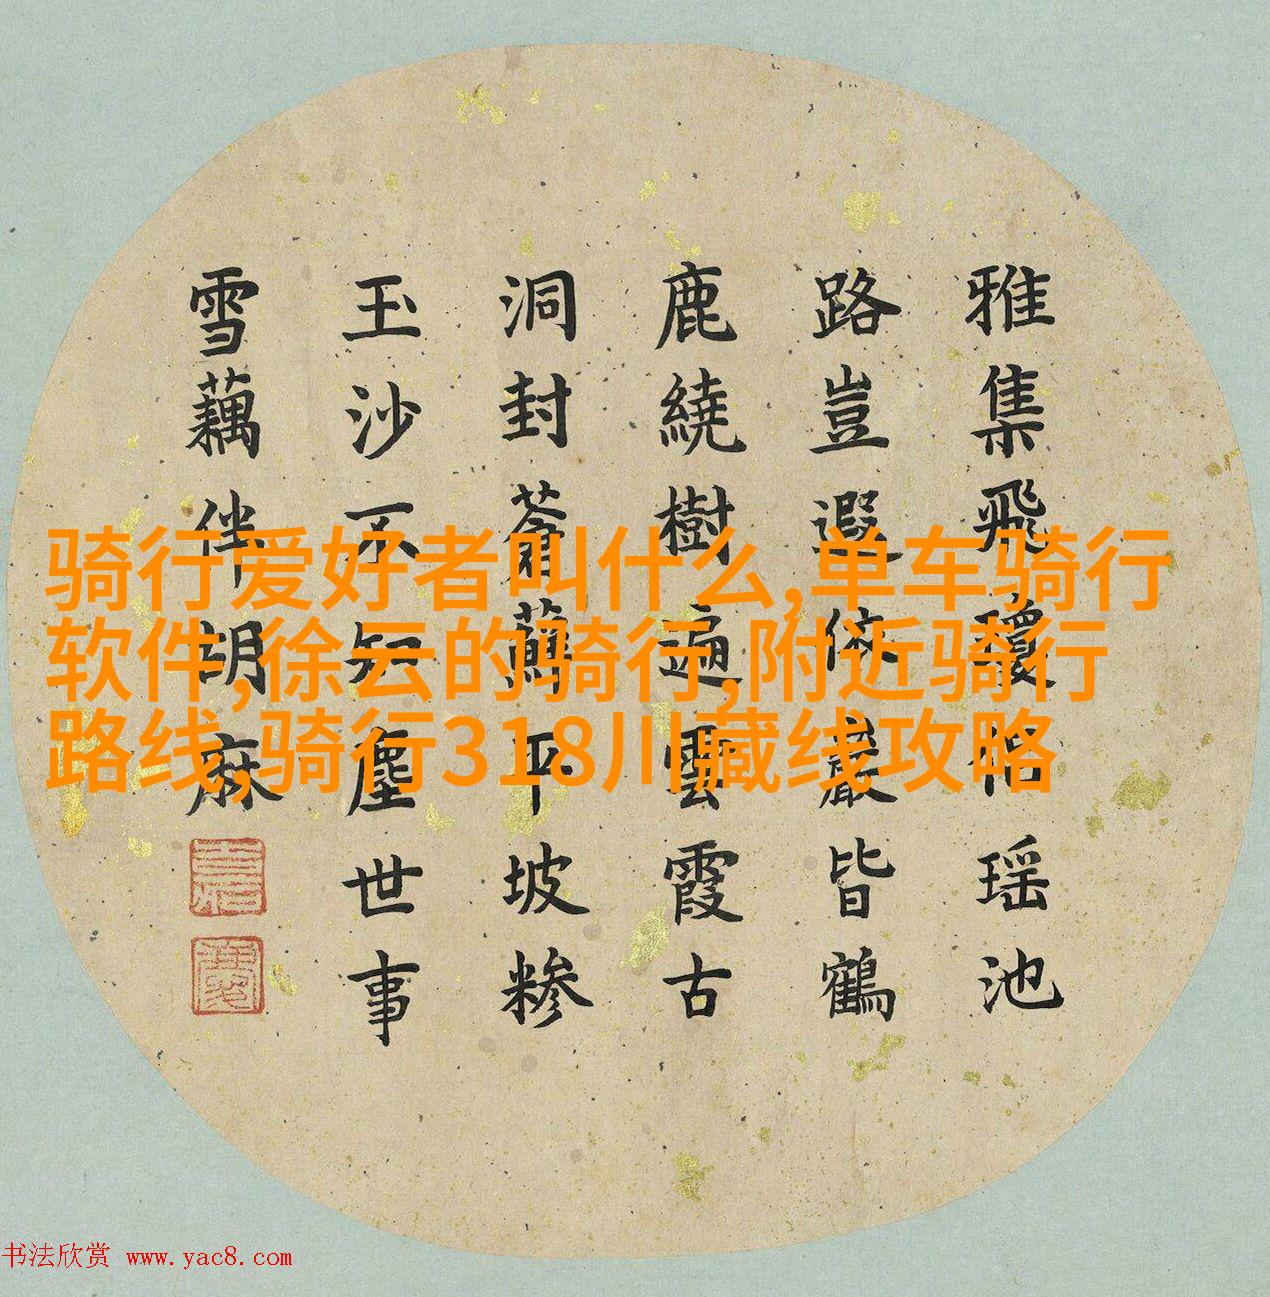 雅集飛瓊佀瑶池
路豈遐依巖皆鶴
鹿繞樹遍雲霞古
洞封蒼蘚平坡糝
玉沙不知塵世事
雪藕伴胡麻
骑行爱好者叫什么,单车骑行
软件,徐云的骑行,附近骑行
路线,骑行318川藏线攻略
书法欣赏 www.yac8.com